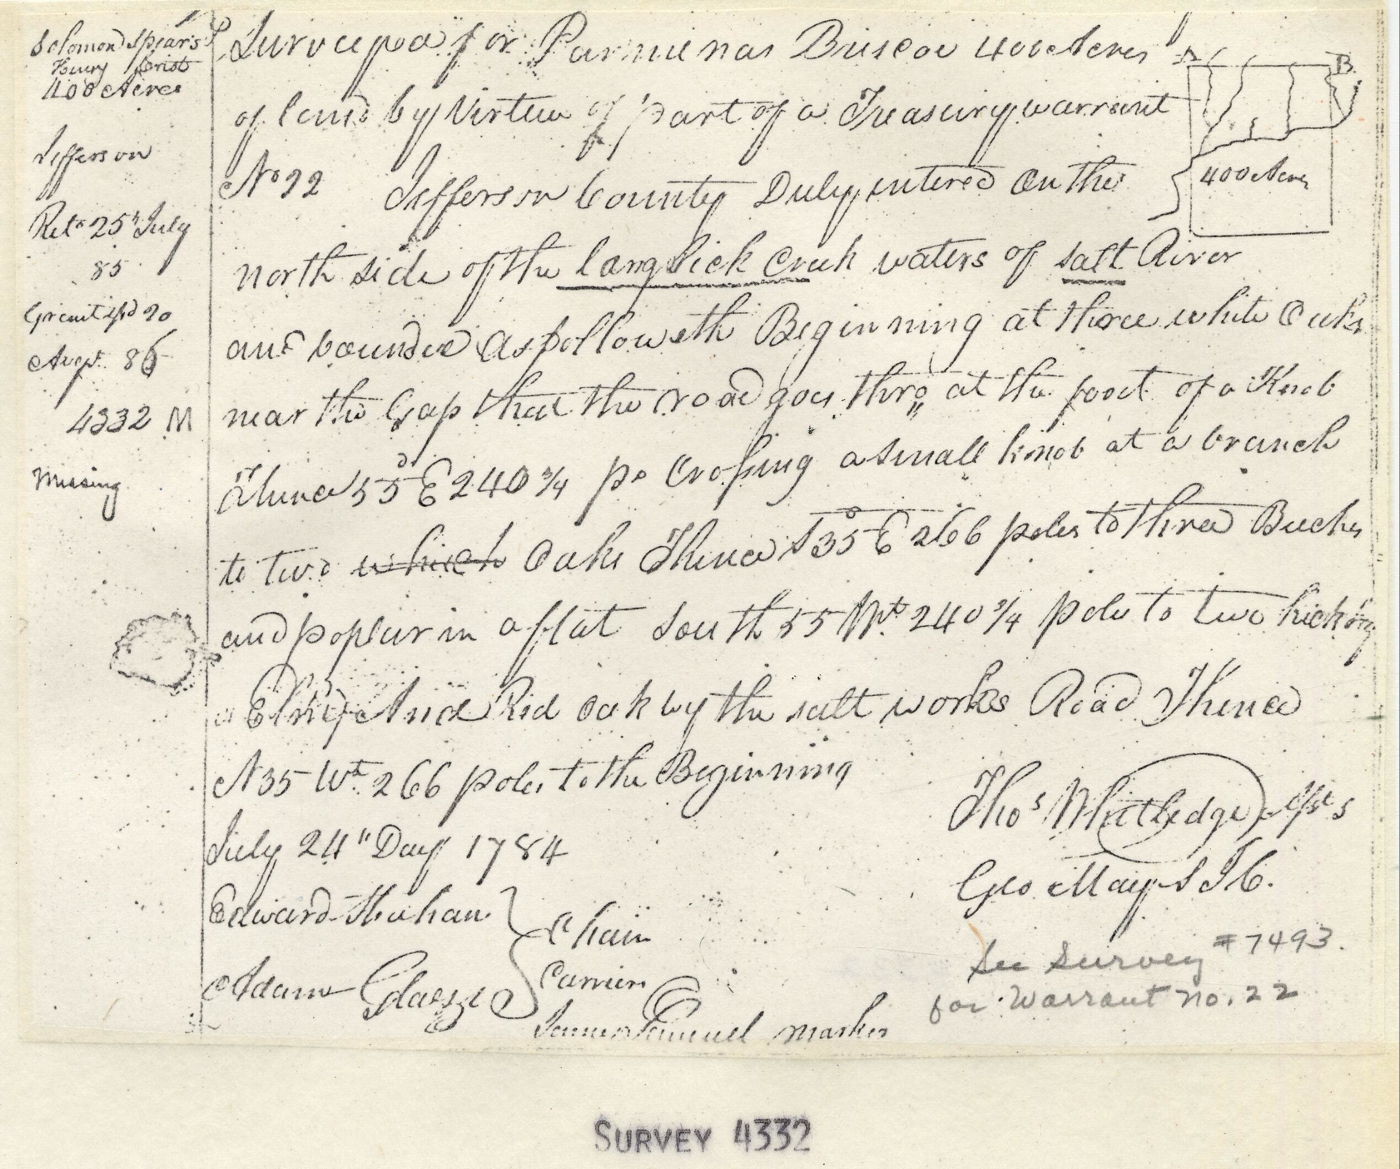 Solomon Spears
Henry Crist
400 Acres
Jefferson
Ret.d 25th July
85
Grant isd 20
Augt. 86
4332 M
Missing
Surveyed for Parmenas Briscoe 400 Acres
of land by Virtue of part of a Treasury warrant
No 22 Jefferson County Duly entered on the
north side of the long lick Creek waters of salt River
and bounded as followeth Beginning at three white Oaks
near the Gap that the road goes thro at the foot of a Knob
Thence 55d E 240 3/4 po Crossing a small knob at a branch
to two which Oaks Thence S 35 E 266 poles to three Beeches
and poplar in a flat South 55 Wt. 240 3/4 pole to two hickory
Elm And Red oak by the salt works Road Thence
N 35 Wt 266 poles to the Beginning
July 24th Day 1784
A B
400 Acres
Thos Whitledge Asst S
Geo May S J C.
Edward
Adam
Chain
Carriers
James marker
See Survey #7493.
for Warrant no. 22
SURVEY 4332